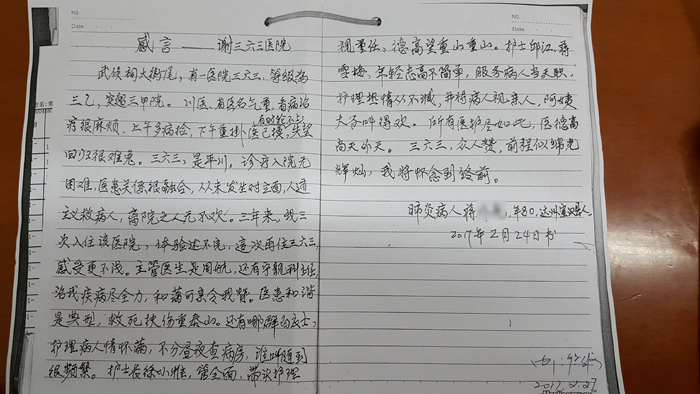 No.
Date
感言——谢三六三医院
武侯祠大街尾,有一医院三六三,等级为
三乙,实超三甲院。川医、省医名气重,看病治
疗很麻烦。上午多病捡,下午重挂医已
回归很难免。三六三,是平川,诊疗入院无
困难,医患关係很融合,从未发生对立面,人道
主义救病人,离院之人无不欢。三年来,我三
次入住该医院,体验述不完,这次再住三六三,
感受更不浅。主管医生是周航,还有
治我疾病尽全力,和蔼可亲令我赞。医患和谐
是典型,救死扶伤重泰山。还有哪群白衣士,
护理病人情怀满,不分昼夜查病房,谁呼随到
很频繁。护士长徐小雅,管全面,带头护理
No.
Date
视重任,德高望重山重山。护士邱江、蒋
雪梅,年轻志高不简单,服务病人当天职,
护理热情从不减,并将病人视亲人,阿姨
大爷叫得欢。所有医护尽如此,医德高
尚天外天。三六三,众人赞,前程似锦光
辉灿,我将怀念到终前。
肺炎病人蒋,年80,达州宣汉县人
2017年2月24日书
2017.2.27